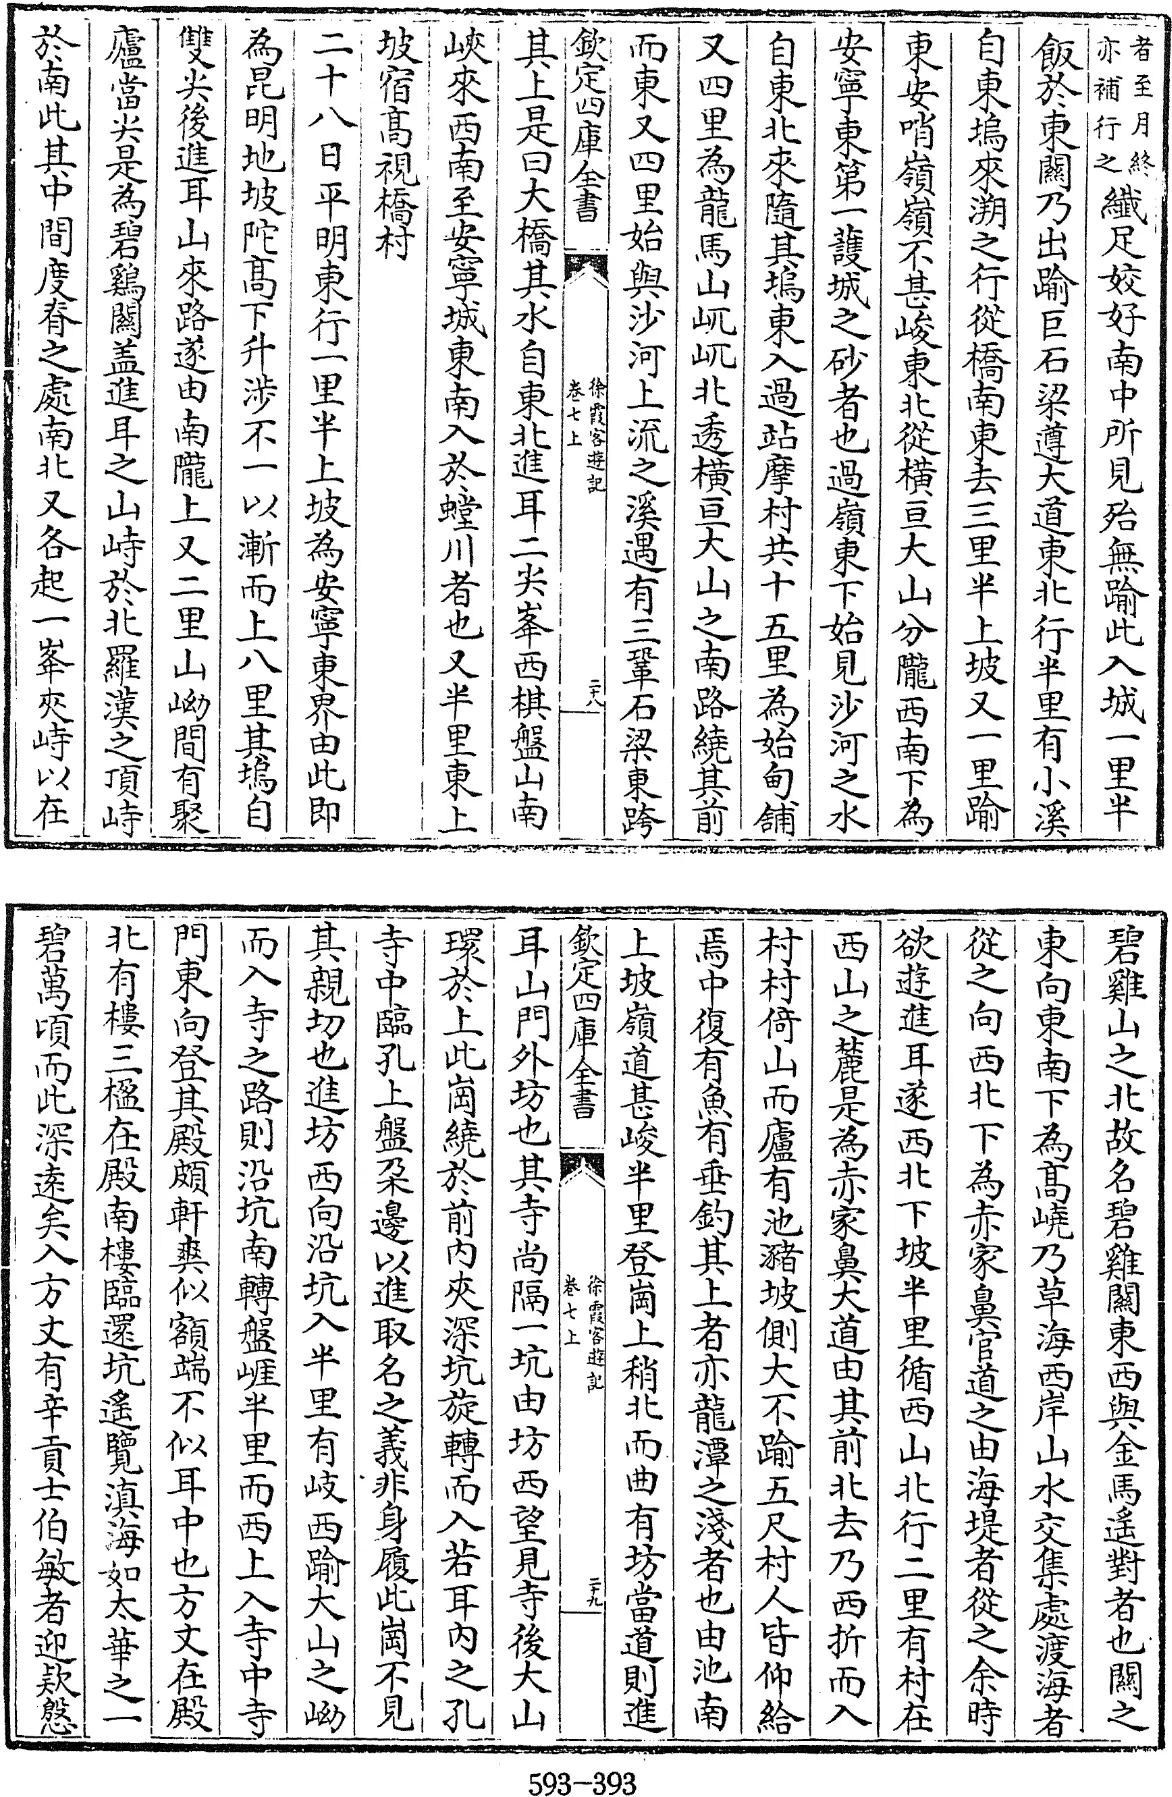 者至月終
亦補行之
纎足姣好南中所見殆無踰此入城一里半
飯於東關乃出踰巨石梁遵大道東北行半里有小溪
自東塢來溯之行從橋南東去三里半上坡又一里踰
東安哨嶺嶺不甚峻東北從橫亘大山分隴西南下為
安寧東第一護城之砂者也過嶺東下始見沙河之水
自東北來隨其塢東入過站摩村共十五里為始甸舖
又四里為龍馬山屼屼北透橫亘大山之南路繞其前
而東又四里始與沙河上流之溪遇有三鞏石梁東跨
欽定四庫全書
徐霞客遊記
卷七上
二十八
其上是曰大橋其水自東北進耳二尖峯西棋盤山南
峽來西南至安寧城東南入於螳川者也又半里東上
坡宿髙視橋村
二十八日平明東行一里半上坡為安寧東界由此即
為昆明地坡陀髙下升涉不一以漸而上八里其塢自
雙尖後進耳山來路遂由南隴上又二里山坳間有聚
廬當尖是為碧鷄關盖進耳之山峙於北羅漢之頂峙
於南此其中間度脊之處南北又各起一峯夾峙以在
碧雞山之北故名碧雞關東西與金馬遥對者也關之
東向東南下為髙嶢乃草海西岸山水交集處渡海者
從之向西北下為赤家鼻官道之由海堤者從之余時
欲遊進耳遂西北下坡半里循西山北行二里有村在
西山之麓是為赤家鼻大道由其前北去乃西折而入
村村倚山而廬有池瀦坡側大不踰五尺村人皆仰給
焉中復有魚有垂釣其上者亦龍潭之淺者也由池南
上坡嶺道甚峻半里登崗上稍北而曲有坊當道則進
欽定四庫全書
徐霞客遊記
卷七上
二十九
耳山門外坊也其寺尚隔一坑由坊西望見寺後大山
環於上此崗繞於前内夾深坑旋轉而入若耳内之孔
寺中臨孔上盤朶邊以進取名之義非身履此崗不見
其親切也進坊西向沿坑入半里有岐西踰大山之坳
而入寺之路則沿坑南轉盤崕半里而西上入寺中寺
門東向登其殿頗軒爽似額端不似耳中也方丈在殿
北有樓三楹在殿南樓臨還坑遙覽滇海如太華之一
碧萬頃而此深逺矣入方丈有辛貢士伯敏者迎欵慇
593-393